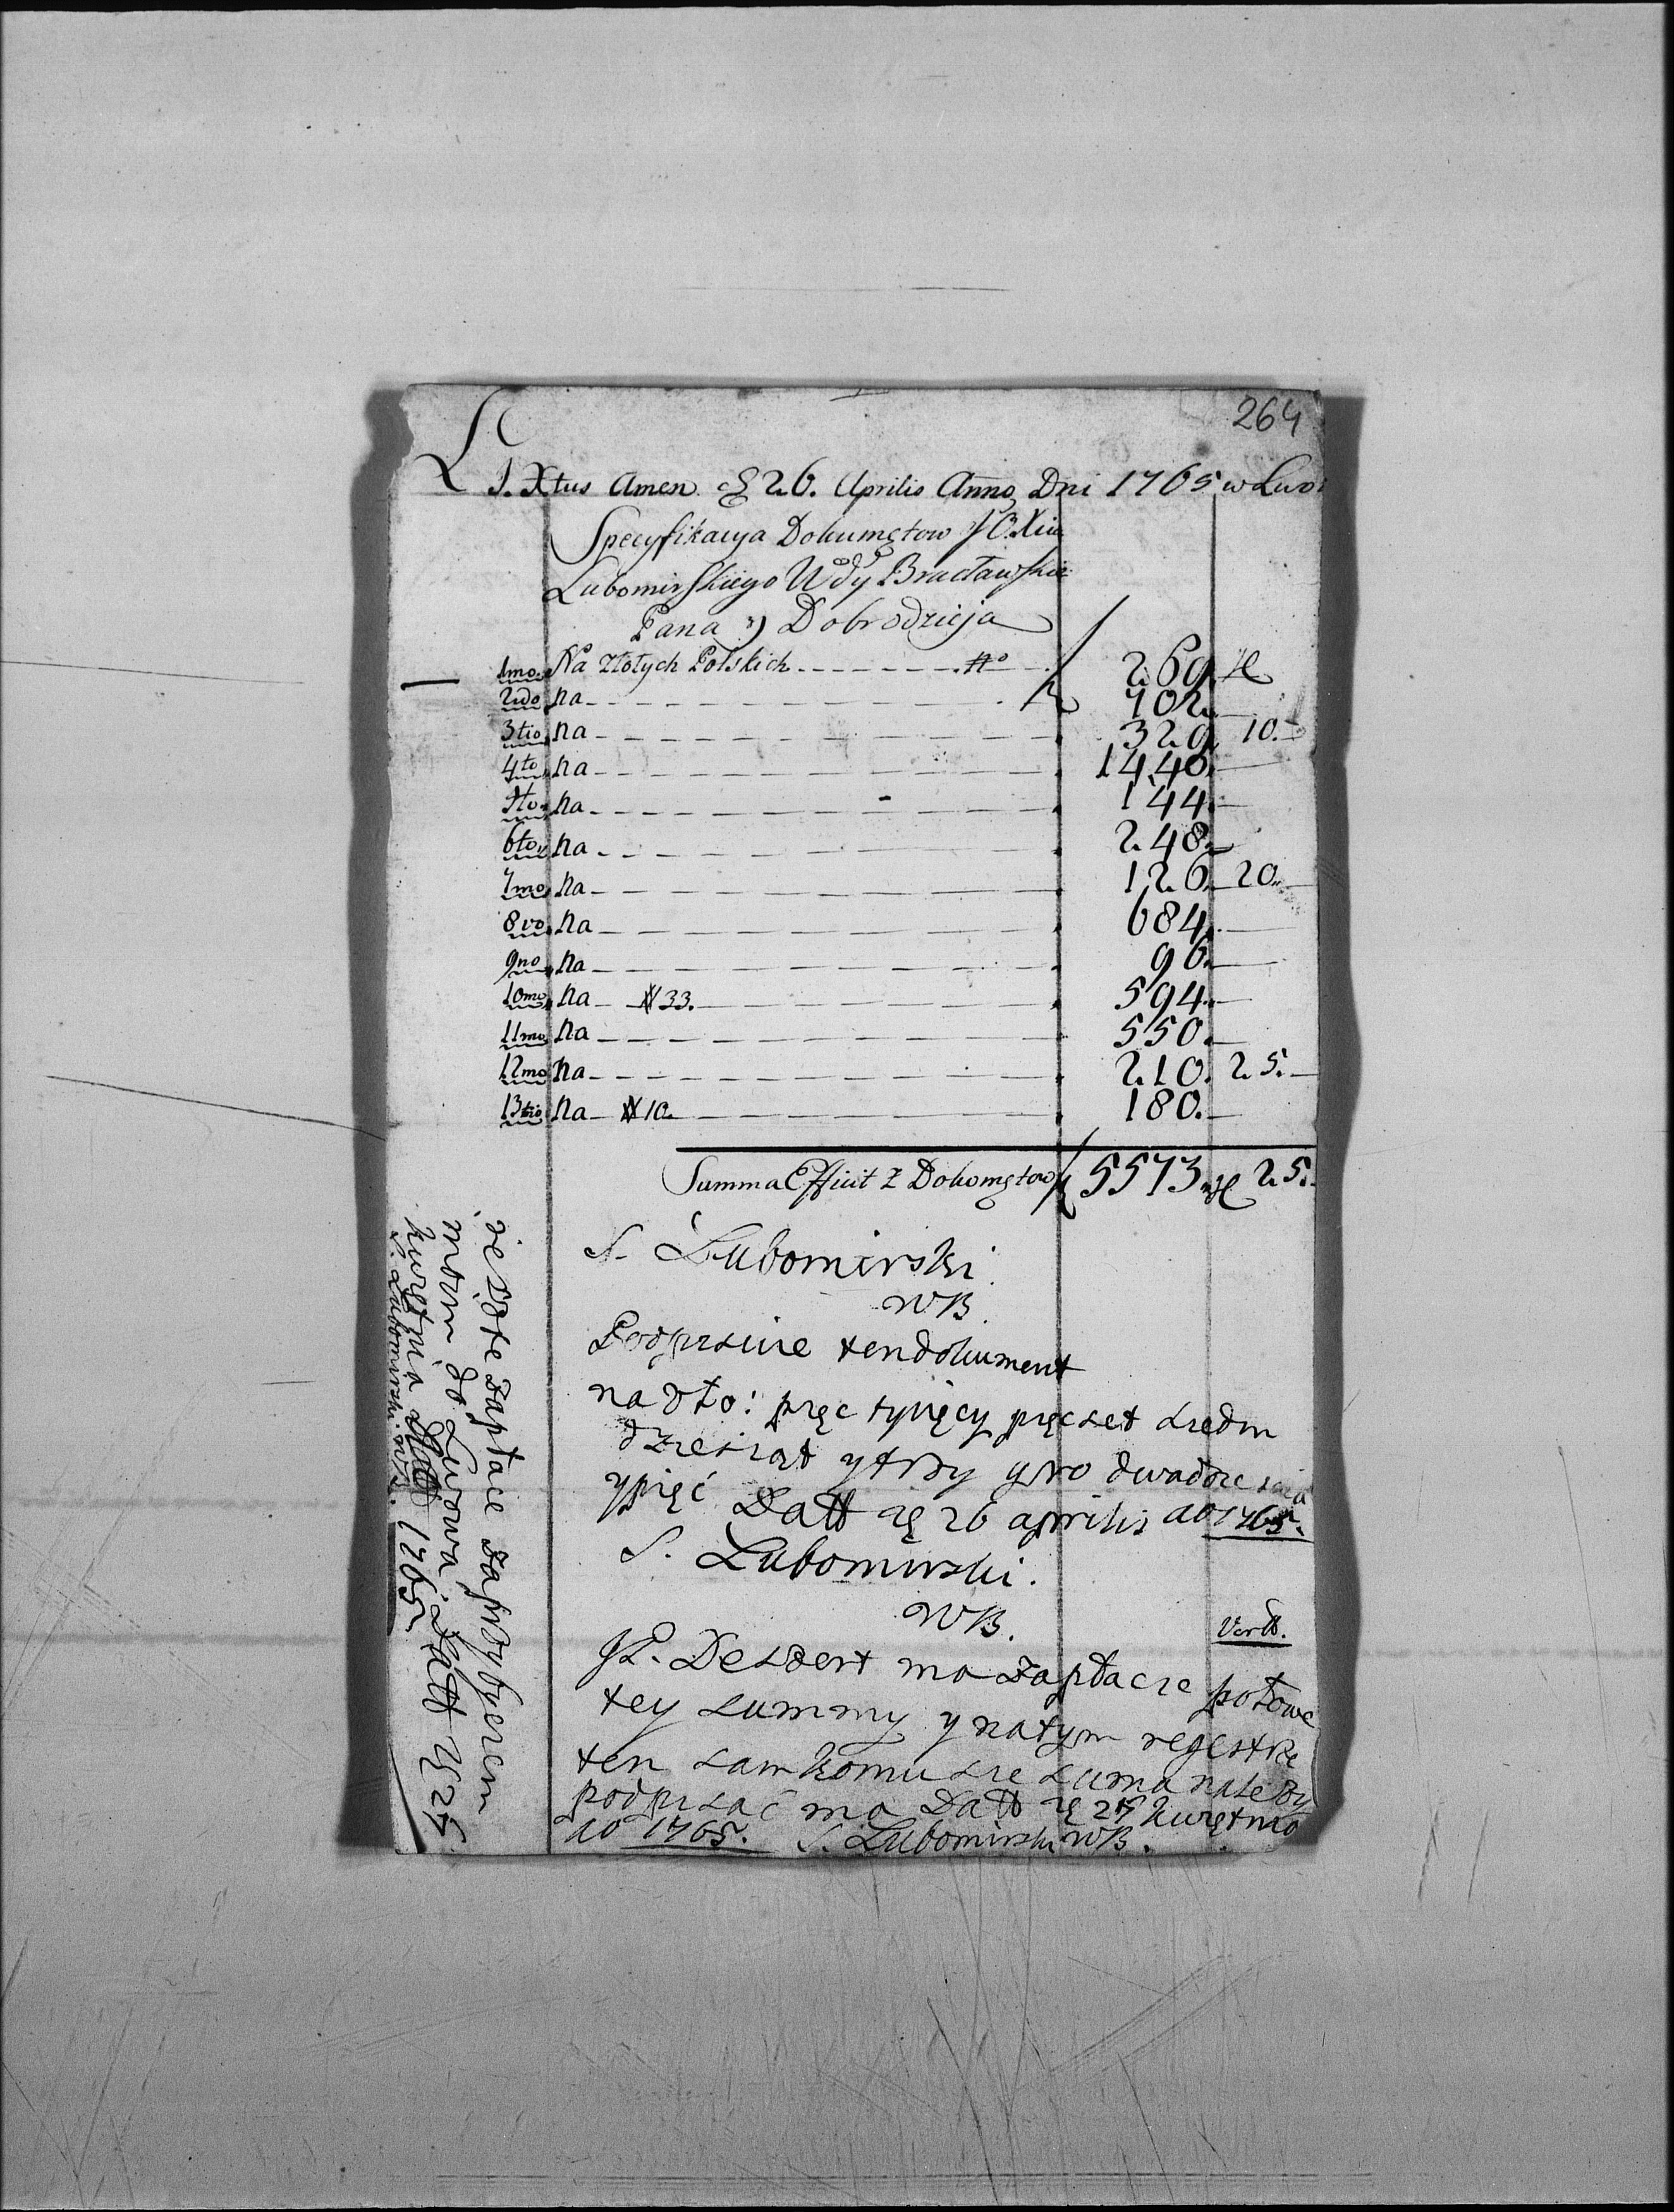 264
J. Xtus Amen. 26. Aprilis Anno Dni 1765 w Lwo
Specyfikacya Dokumętow JO. Xcia
Lubomirskiego Wdy Bracławskie
Pana y Dobrodzieja
1mo. Na Złotych Polskich 269
2do na 702
3tio na 329 10.
4to na 1440.
5to na 144.
6to na 248.
7mo na 126. 20.
8vo na 684.
9no na 96.
10mo na # 33. 594.
11mo na 550.
12mo na 210. 25.
13tio na # 10. 180.
Summa Efficit z Dokomętow 5573 25.
S. Lubomirski
WB.
Podpisuie ten dokument
na zło: pięc tysięcy pięcset siedm
dziesiąt y trzy gro dwadziescia
y pięć Datt 26 aprilis ao 1765.
S. Lubomirski.
WB.
Vertt.
JP. Deszert ma zapłacic połowe
tey summy y na tym regestrze
ten sam komu sie suma nalezy
podpisać ma Datt 25 kwietnia
ao 1765. S. Lubomirski WB.
zapłace za przybyciem
moim do Lwowa Datt 25
kwietnia 1765
S. Lubomirski WB.